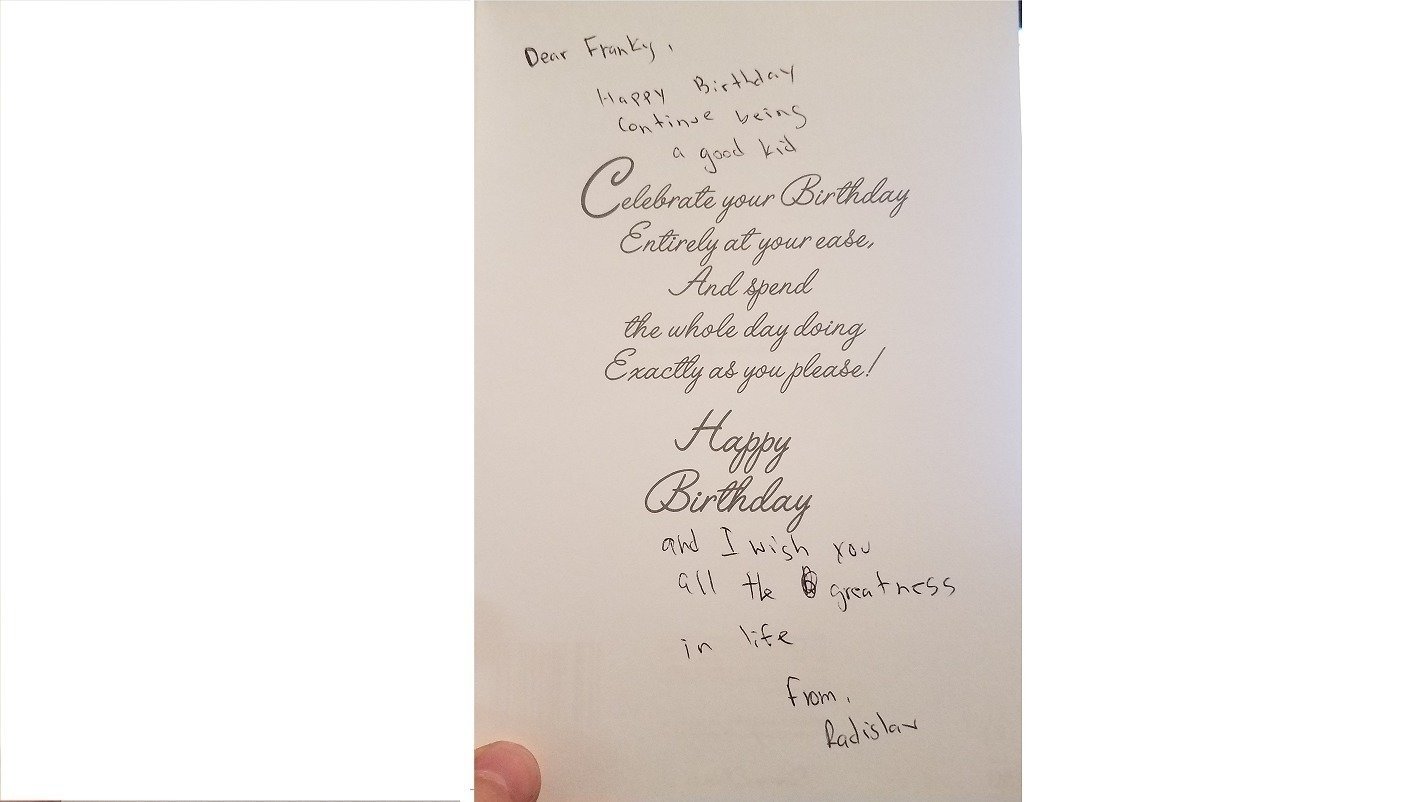 Dear Franky,
Happy Birthday
Continue being
a good kid
Celebrate your Birthday
Entirely at your ease,
And spend
the whole day doing
Exactly as you please!
Happy
Birthday
and I wish you
all the greatness
in life
From,
Radislav